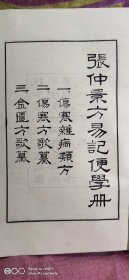 張仲景方易記便學冊
一傷寒雜病類方
二傷寒方歌纂
三金匱方歌纂